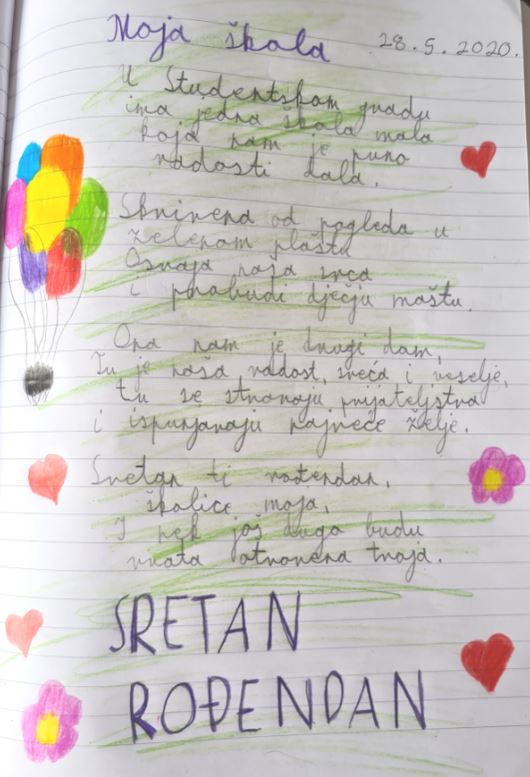 Moja škola
28.5.2020.
U Studentskom gradu
ima jedna škola mala
koja nam je puno
radosti dala.
Skrivena od pogleda u
zelenom plaštu
Osvaja naša srca
i probudi dječju maštu.
Ona nam je drugi dom,
Tu je naša radost, sreća i veselje,
tu se stvaraju prijateljstva
i ispunjavaju najveće želje.
Sretan ti rođendan,
školice moja,
I nek još dugo budu
vrata otvorena tvoja.
SRETAN
ROĐENDAN